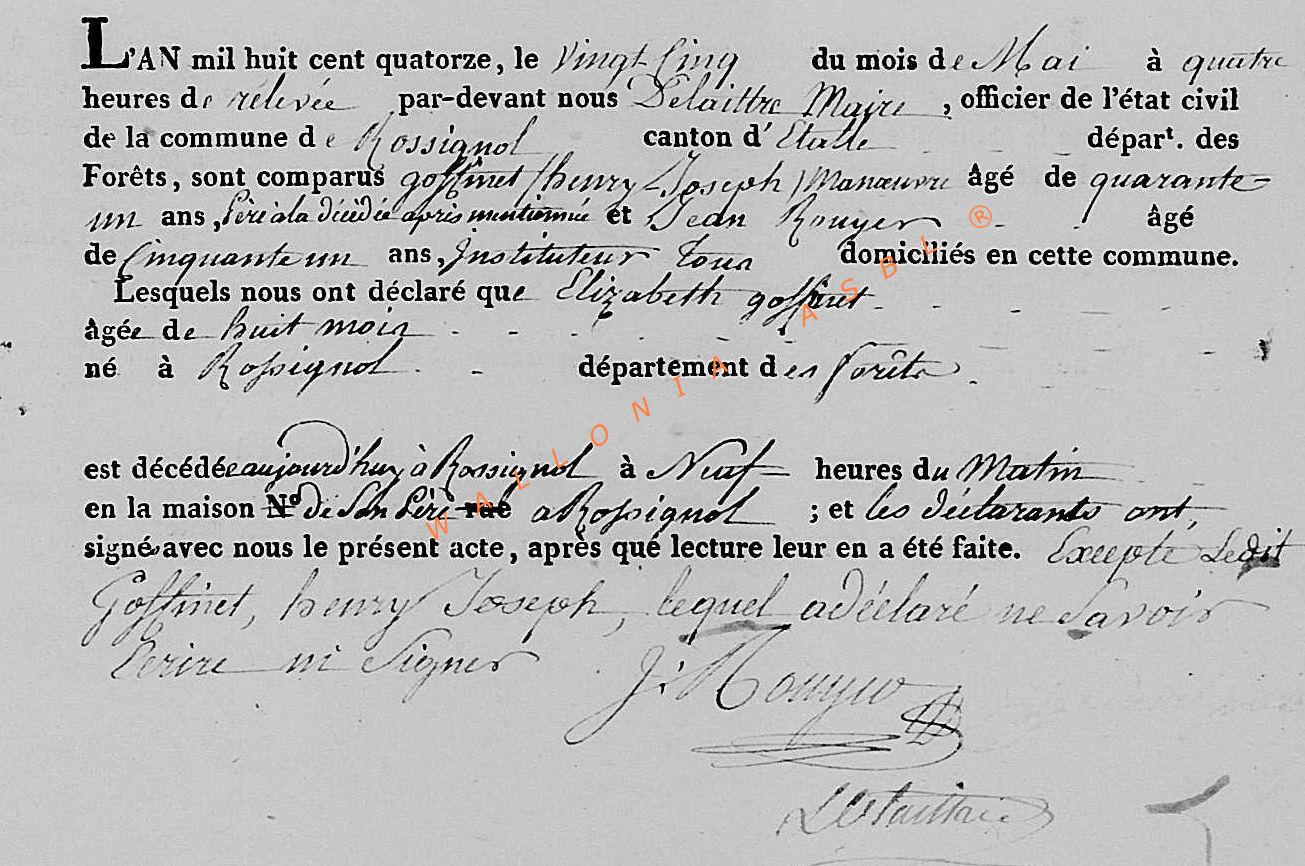 L'AN mil huit cent quatorze, le Vingt Cinq du mois de Mai à quatre
heures de relevée par-devant nous Delaittre Maire, officier de l'état civil
de la commune de Rossignol canton d'Etalle départ. des
Forêts, sont comparus goffinet, henry Joseph, Manœuvre âgé de quarante
un ans, Père à la décédée après mentionnée et Jean Rouyer âgé
de Cinquante un ans, Instituteur tous domiciliés en cette commune.
Lesquels nous ont déclaré que Elizabeth goffinet
âgée de huit mois
né à Rossignol département des forêts
est décédée aujourd'huy à Rossignol à Neuf heures du Matin
en la maison N° de Son Père rue a Rossignol ; et les déclarants ont,
signés avec nous le présent acte, après que lecture leur en a été faite. Excepté Ledit
Goffinet, henry Joseph, lequel a déclaré ne Savoir
Ecrire ni Signer J: Rouyer
Delaittre
WALLONIA ASBL ®